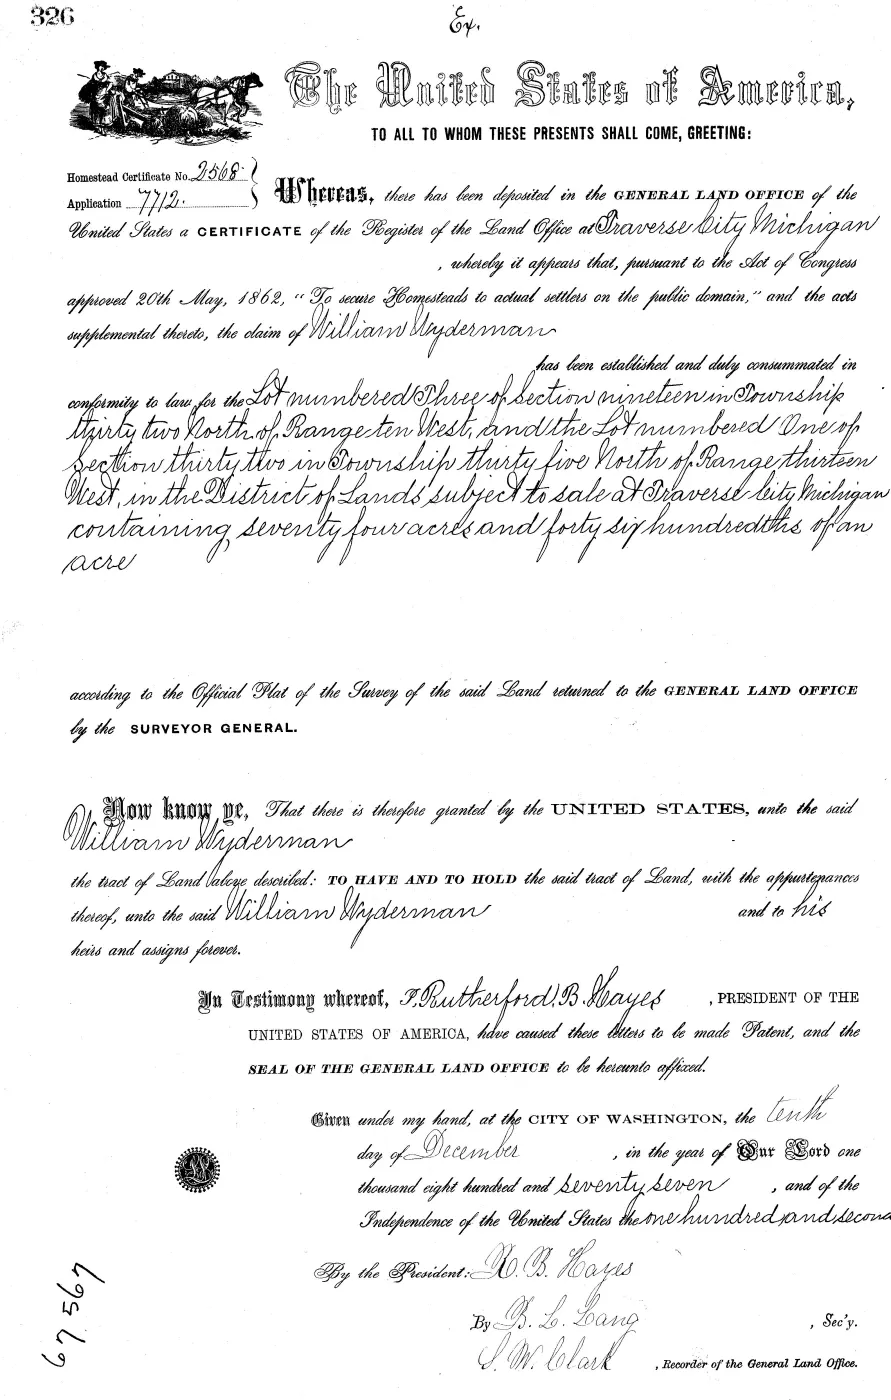 326
Ex.
The United States of America,
TO ALL TO WHOM THESE PRESENTS SHALL COME, GREETING:
Homestead Certificate No. 2568.
Application 7712.
Whereas, there has been deposited in the GENERAL LAND OFFICE of the
United States a CERTIFICATE of the Register of the Land Office at Traverse City Michigan
, whereby it appears that, pursuant to the Act of Congress
approved 20th May, 1862, "To secure Homesteads to actual settlers on the public domain," and the acts
supplemental thereto, the claim of William Wyderman
has been established and duly consummated in
conformity to law, for the Lot numbered Three of Section nineteen in Township
thirty two North of Range ten West, and the Lot numbered One of
Section thirty two in Township thirty five North of Range thirteen
West, in the District of Lands subject to sale at Traverse City Michigan
containing seventy four acres and forty six hundredths of an
acre
according to the Official Plat of the Survey of the said Land returned to the GENERAL LAND OFFICE
by the SURVEYOR GENERAL.
Now know ye, That there is therefore granted by the UNITED STATES, unto the said
William Wyderman
the tract of Land above described: TO HAVE AND TO HOLD the said tract of Land, with the appurtenances
thereof, unto the said William Wyderman and to his
heirs and assigns forever.
In Testimony whereof, I, Rutherford B. Hayes , PRESIDENT OF THE
UNITED STATES OF AMERICA, have caused these letters to be made Patent, and the
SEAL OF THE GENERAL LAND OFFICE to be hereunto affixed.
Given under my hand, at the CITY OF WASHINGTON, the tenth
day of December , in the year of Our Lord one
thousand eight hundred and seventy seven , and of the
Independence of the United States the one hundred and second
By the President: R. B. Hayes
By B. L. Lang , Sec'y.
S. W. Clark , Recorder of the General Land Office.
67567